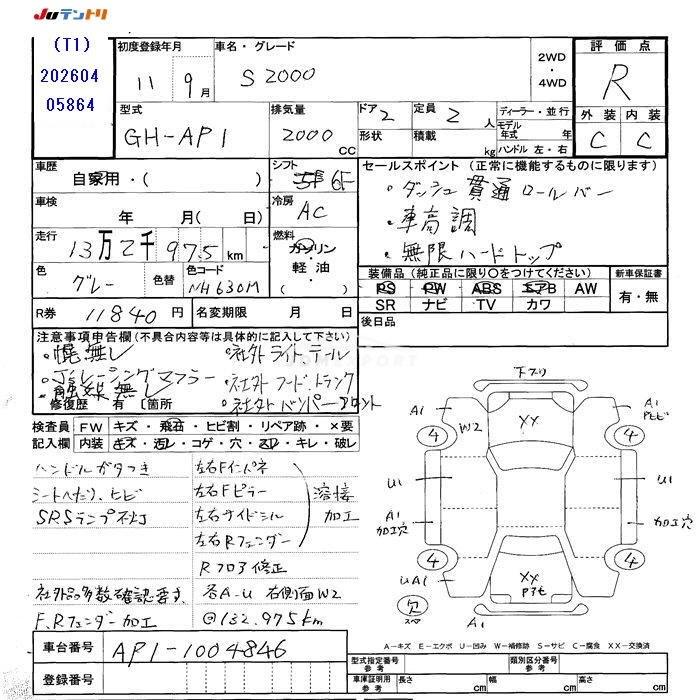 JUテントリ
(T1)
202604
05864
初度登録年月
11 9月
車名・グレード
S2000
2WD
・
4WD
評価点
R
外装 内装
C C
型式
GH-AP1
排気量
2000 cc
ドア 2
形状
定員 2 人
積載 kg
ディーラー・並行
モデル年式 年
ハンドル 左・右
車歴
自家用・( )
シフト
5F 6F
セールスポイント (正常に機能するものに限ります)
・ダッシュ貫通ロールバー
・車高調
・無限ハードトップ
車検
年 月( 日)
冷房
AC
走行
13万2千975 km
燃料
ガソリン
軽油
( )
色
グレー
色替
色コード
NH630M
装備品 (純正品に限り○をつけてください)
PS PW ABS エアB AW
SR ナビ TV カワ
新車保証書
有・無
R券 11840 円
名変期限 月 日
後日品
注意事項申告欄 (不具合内容等は具体的に記入して下さい)
・幌無し ・社外ライト、テール
・J'sレーシングマフラー ・社外フード、トランク
・触媒無し ・社外バンパーフロント
修復歴 有 [箇所
検査員記入欄
FW キズ・飛石・ヒビ割・リペア跡・×要
内装 キズ・汚レ・コゲ・穴・スレ・キレ・破レ
ハンドルガタつき
シートへたり、ヒビ
SRSランプ不灯
左右Fインパネ
左右Fピラー
左右サイドシル
左右Rフェンダー
溶接
加工
Rフロア修正
社外品多数確認要す
各A-U 右側面W2
F、Rフェンダー加工
@132.975km
下ズリ
A1
W2
XX
A1
PヒビP
4
4
U1
U1
A1
加工穴
加工穴
4
4
UA1
XX
欠
スペア
A1
A−キズ E−エクボ U−凹み W−補修跡 S−サビ C−腐食 XX−交換済
車台番号
AP1-1004846
登録番号
型式指定番号
参考
類別区分番号
参考
車庫証明用
参考
長さ cm
幅 cm
高さ cm